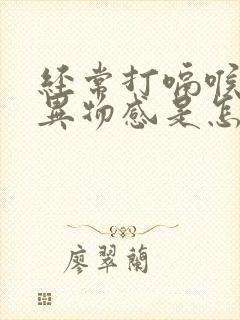 經常打嗝喉
異物感是怎
廖翠蘭